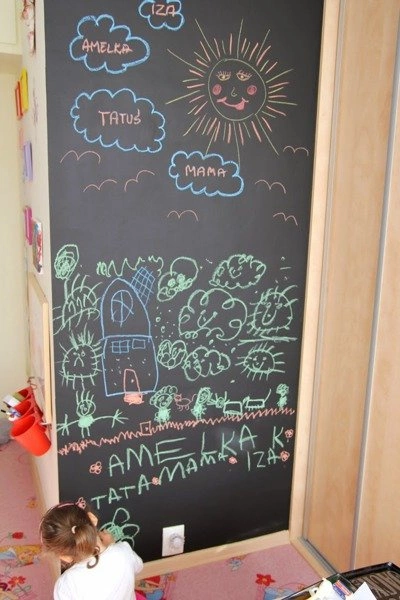 IZA
AMELKA
TATUŚ
MAMA
AMELKA K
TATA MAMA IZA